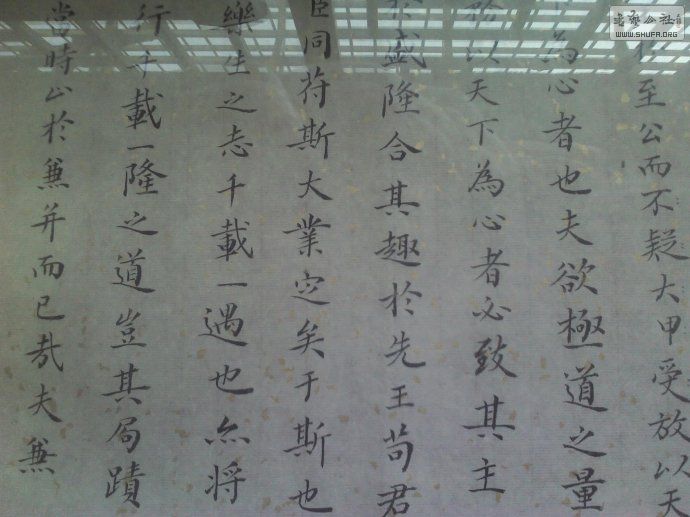 至公而不疑大甲受放以天
為心者也夫欲極道之量
務以天下為心者必致其主
於盛隆合其趣於先王苟君
臣同符斯大業定矣于斯也
樂生之志千載一遇也亦將
行千載一隆之道豈其局蹟
當時止於兼并而已哉夫兼
書藝公社
WWW.SHUFA.ORG